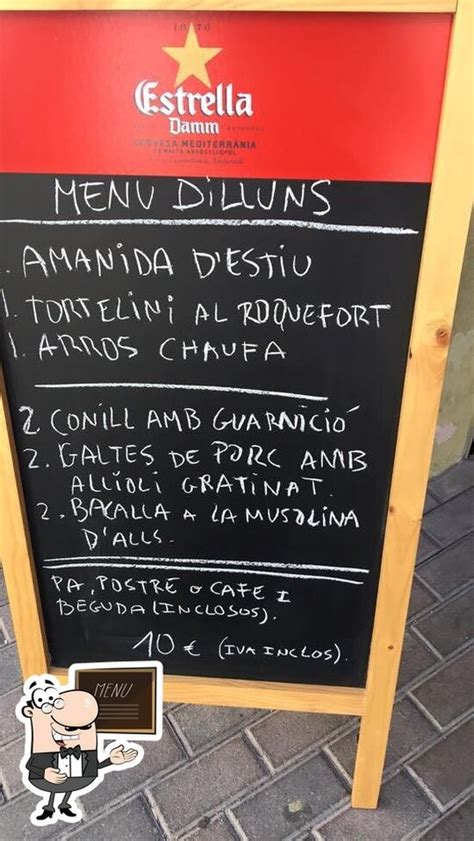 1876
Estrella
Damm
CERVESA MEDITERRÀNIA
MENU DILLUNS
. AMANIDA D'ESTIU
1. TORTELINI AL ROQUEFORT
1. ARROS CHAUFA
2 CONILL AMB GUARNICIÓ
2. GALTES DE PORC AMB
ALLIOLI GRATINAT.
2. BACALLA A LA MUSOLINA
D'ALLS.
PA, POSTRE O CAFE I
BEGUDA (INCLOSOS).
10 € (IVA INCLOS).
MENU